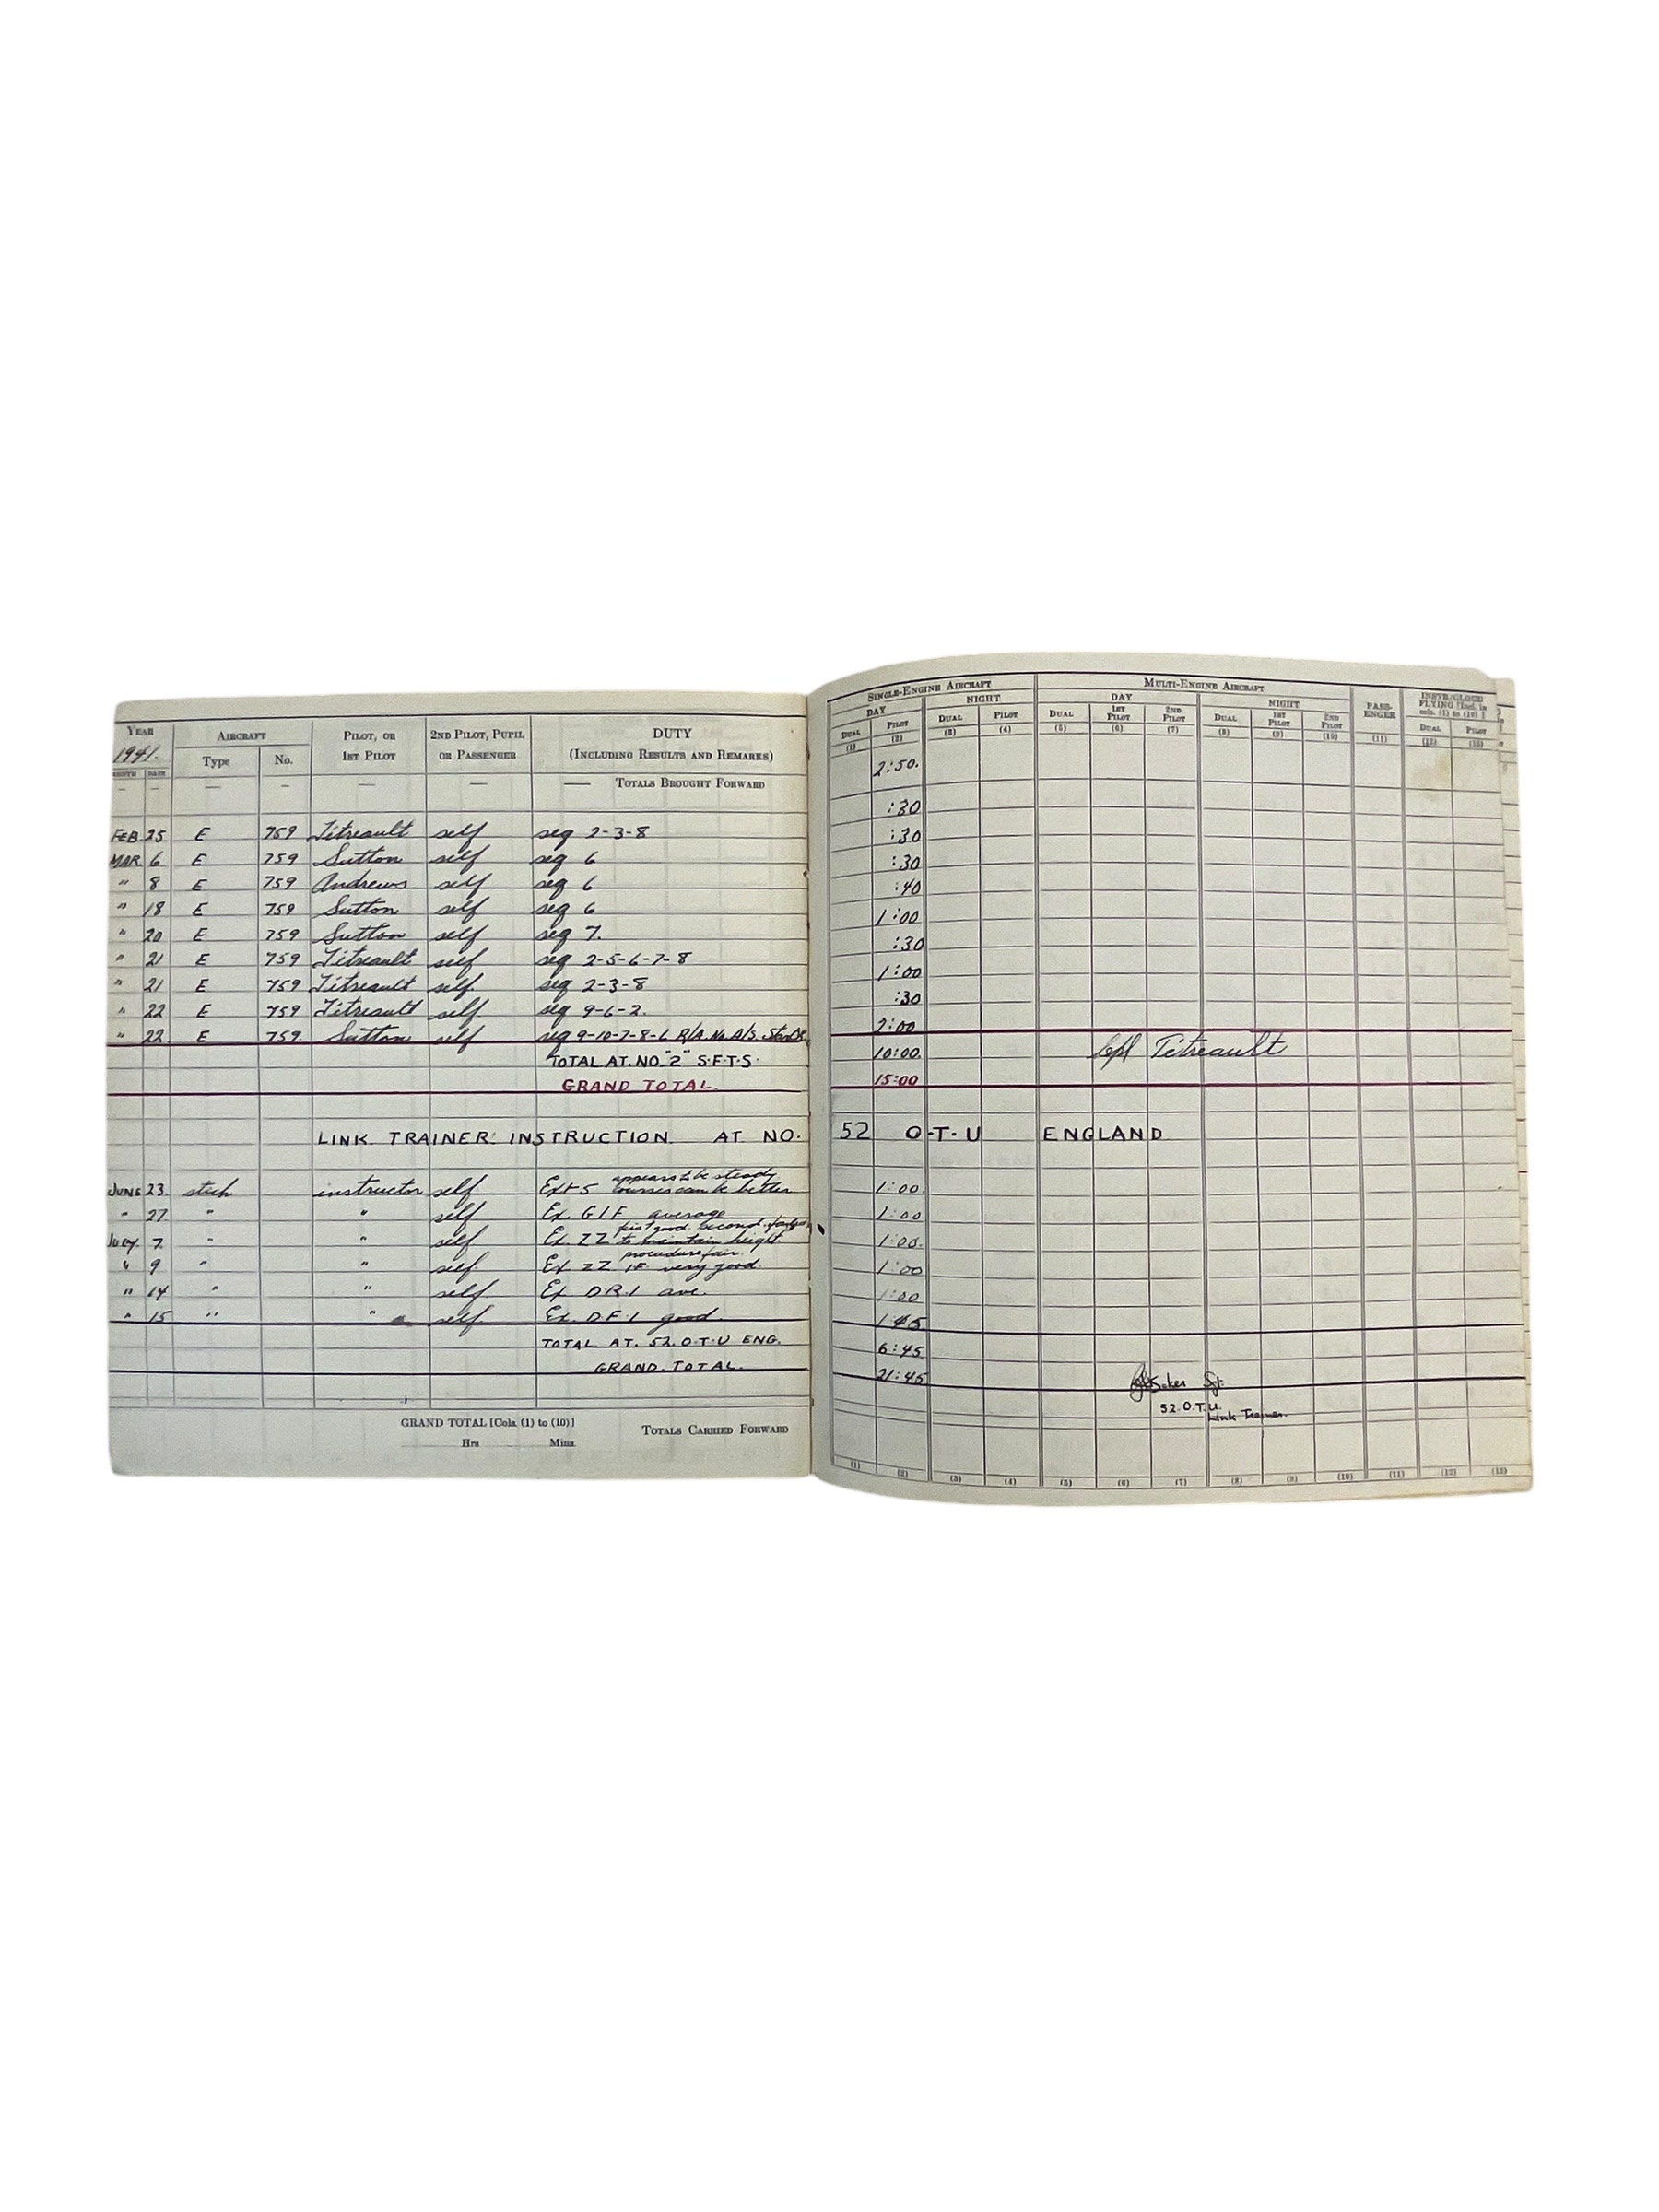 YEAR AIRCRAFT PILOT, OR 2ND PILOT, PUPIL DUTY
1941. Type No. 1ST PILOT OR PASSENGER (INCLUDING RESULTS AND REMARKS)
MONTH DATE
— — — — — — — TOTALS BROUGHT FORWARD
FEB. 25 E 759 Titreault self seq 2-3-8
MAR. 6 E 759 Sutton self seq 6
" 8 E 759 Andrews self seq 6
" 18 E 759 Sutton self seq 6
" 20 E 759 Sutton self seq 7.
" 21 E 759 Titreault self seq 2-5-6-7-8
" 21 E 759 Titreault self seq 2-3-8
" 22 E 759 Titreault self seq 9-6-2.
" 22 E 759. Sutton self seq 9-10-7-8-6 R/A. No A/S.
TOTAL AT. NO. "2" S.F.T.S.
GRAND TOTAL.
LINK TRAINER INSTRUCTION AT NO.
appears to be steady
JUNE 23. stick instructor self Ex 5 courses can be better
" 27 " " self Ex. G I F average
first good. second
JULY. 7. " " self Ex. ZZ to maintain height.
procedure fair.
" 9 " " self. Ex ZZ IF very good.
" 14 " " self Ex D.R.1 ave.
" 15 " " self Ex. D.F.1 good.
TOTAL AT. 52. O.T.U ENG.
GRAND. TOTAL.
GRAND TOTAL [Cols. (1) to (10)] TOTALS CARRIED FORWARD
Hrs Mins.
SINGLE-ENGINE AIRCRAFT MULTI-ENGINE AIRCRAFT INSTR/CLOUD
DAY NIGHT DAY NIGHT PASS- FLYING [Incl. in
ENGER cols. (1) to (10)]
DUAL PILOT DUAL PILOT DUAL 1ST PILOT 2ND PILOT DUAL 1ST PILOT 2ND PILOT DUAL PILOT
(1) (2) (3) (4) (5) (6) (7) (8) (9) (10) (11) (12) (13)
2:50.
:30
:30
:30
:40
1:00
:30
1:00
:30
2:00
10:00 Cpl Titreault
15:00
52 O.T.U ENGLAND
1:00
1:00
1:00.
1:00
1:00
1:45
6:45
21:45
Sgt.
52 O.T.U.
Link Trainer.
(1) (2) (3) (4) (5) (6) (7) (8) (9) (10) (11) (12) (13)